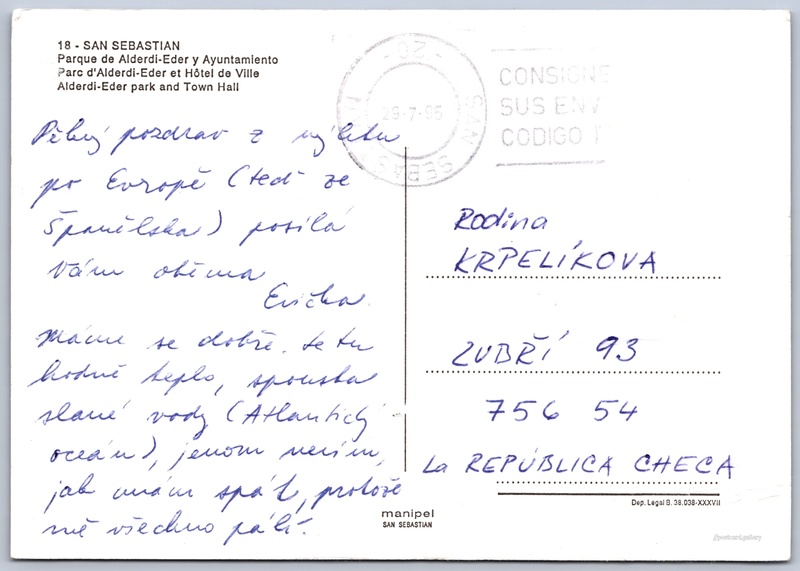 18 - SAN SEBASTIAN
Parque de Alderdi-Eder y Ayuntamiento
Parc d'Alderdi-Eder et Hôtel de Ville
Alderdi-Eder park and Town Hall
- 20 -
29-7-95
SAN SEBAS
CONSIGNE
SUS ENV
CODIGO
Pěkný pozdrav z výletu
po Evropě (teď ze
Španělska) posílá
Vám oběma
Evička
Máme se dobře. Je tu
hodně teplo, spousta
slané vody (Atlantický
oceán), jenom nevím,
jak mám spát, protože
mě všechno pálí.
Rodina
KRPELÍKOVA
ZUBŘÍ 93
756 54
La REPÚBLICA CHECA
manipel
SAN SEBASTIAN
Dep. Legal B. 38.038-XXXVII